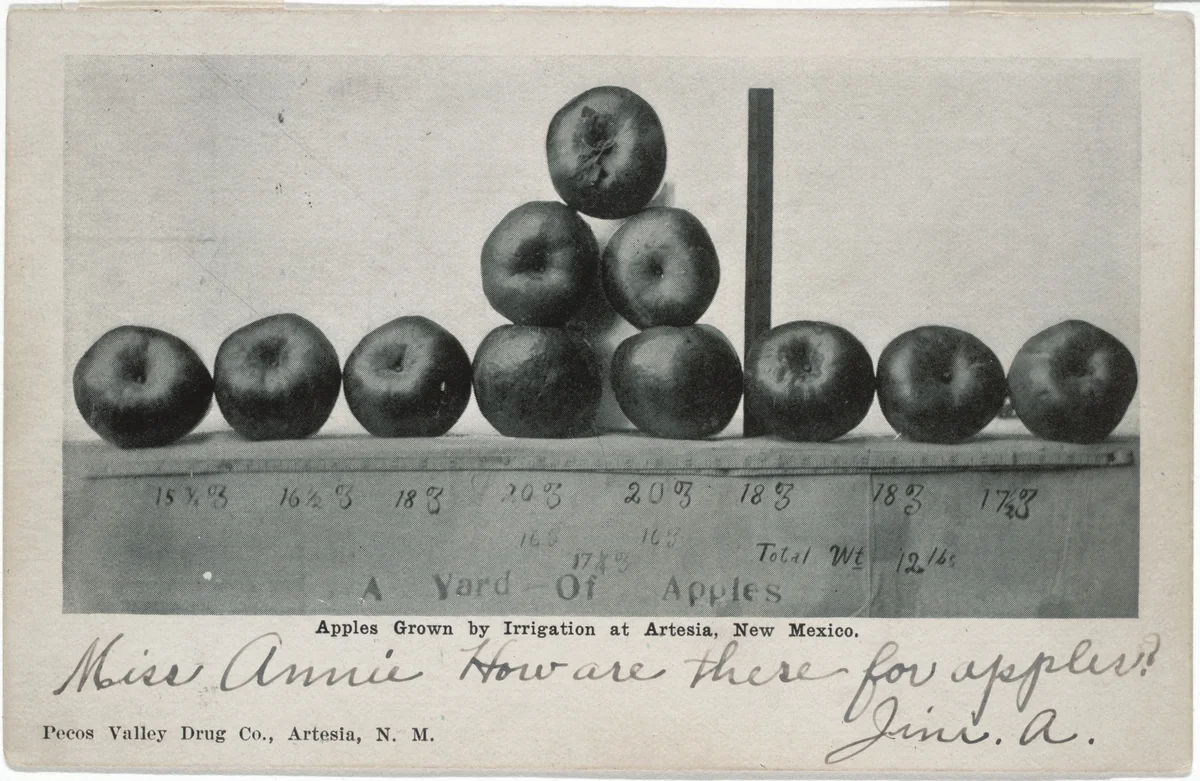 15 ¼ ℥ 16 ½ ℥ 18 ℥ 20 ℥ 20 ℥ 18 ℥ 18 ℥ 17 ½ ℥
16 ℥ 16 ℥
Total Wt 12 lbs
A Yard-Of Apples
Apples Grown by Irrigation at Artesia, New Mexico.
Miss Annie How are these for apples?
Jim. A.
Pecos Valley Drug Co., Artesia, N. M.